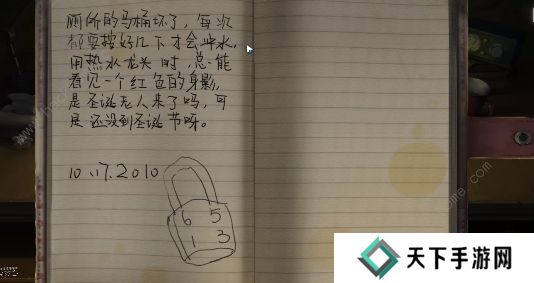 厕所的马桶坏了，每次
都要按好几下才会冲水，
用热水龙头时，总能
看见一个红色的身影，
是圣诞老人来了吗，可
是还没到圣诞节呀。
10.17.2010
6 5
1 3
天下手游网